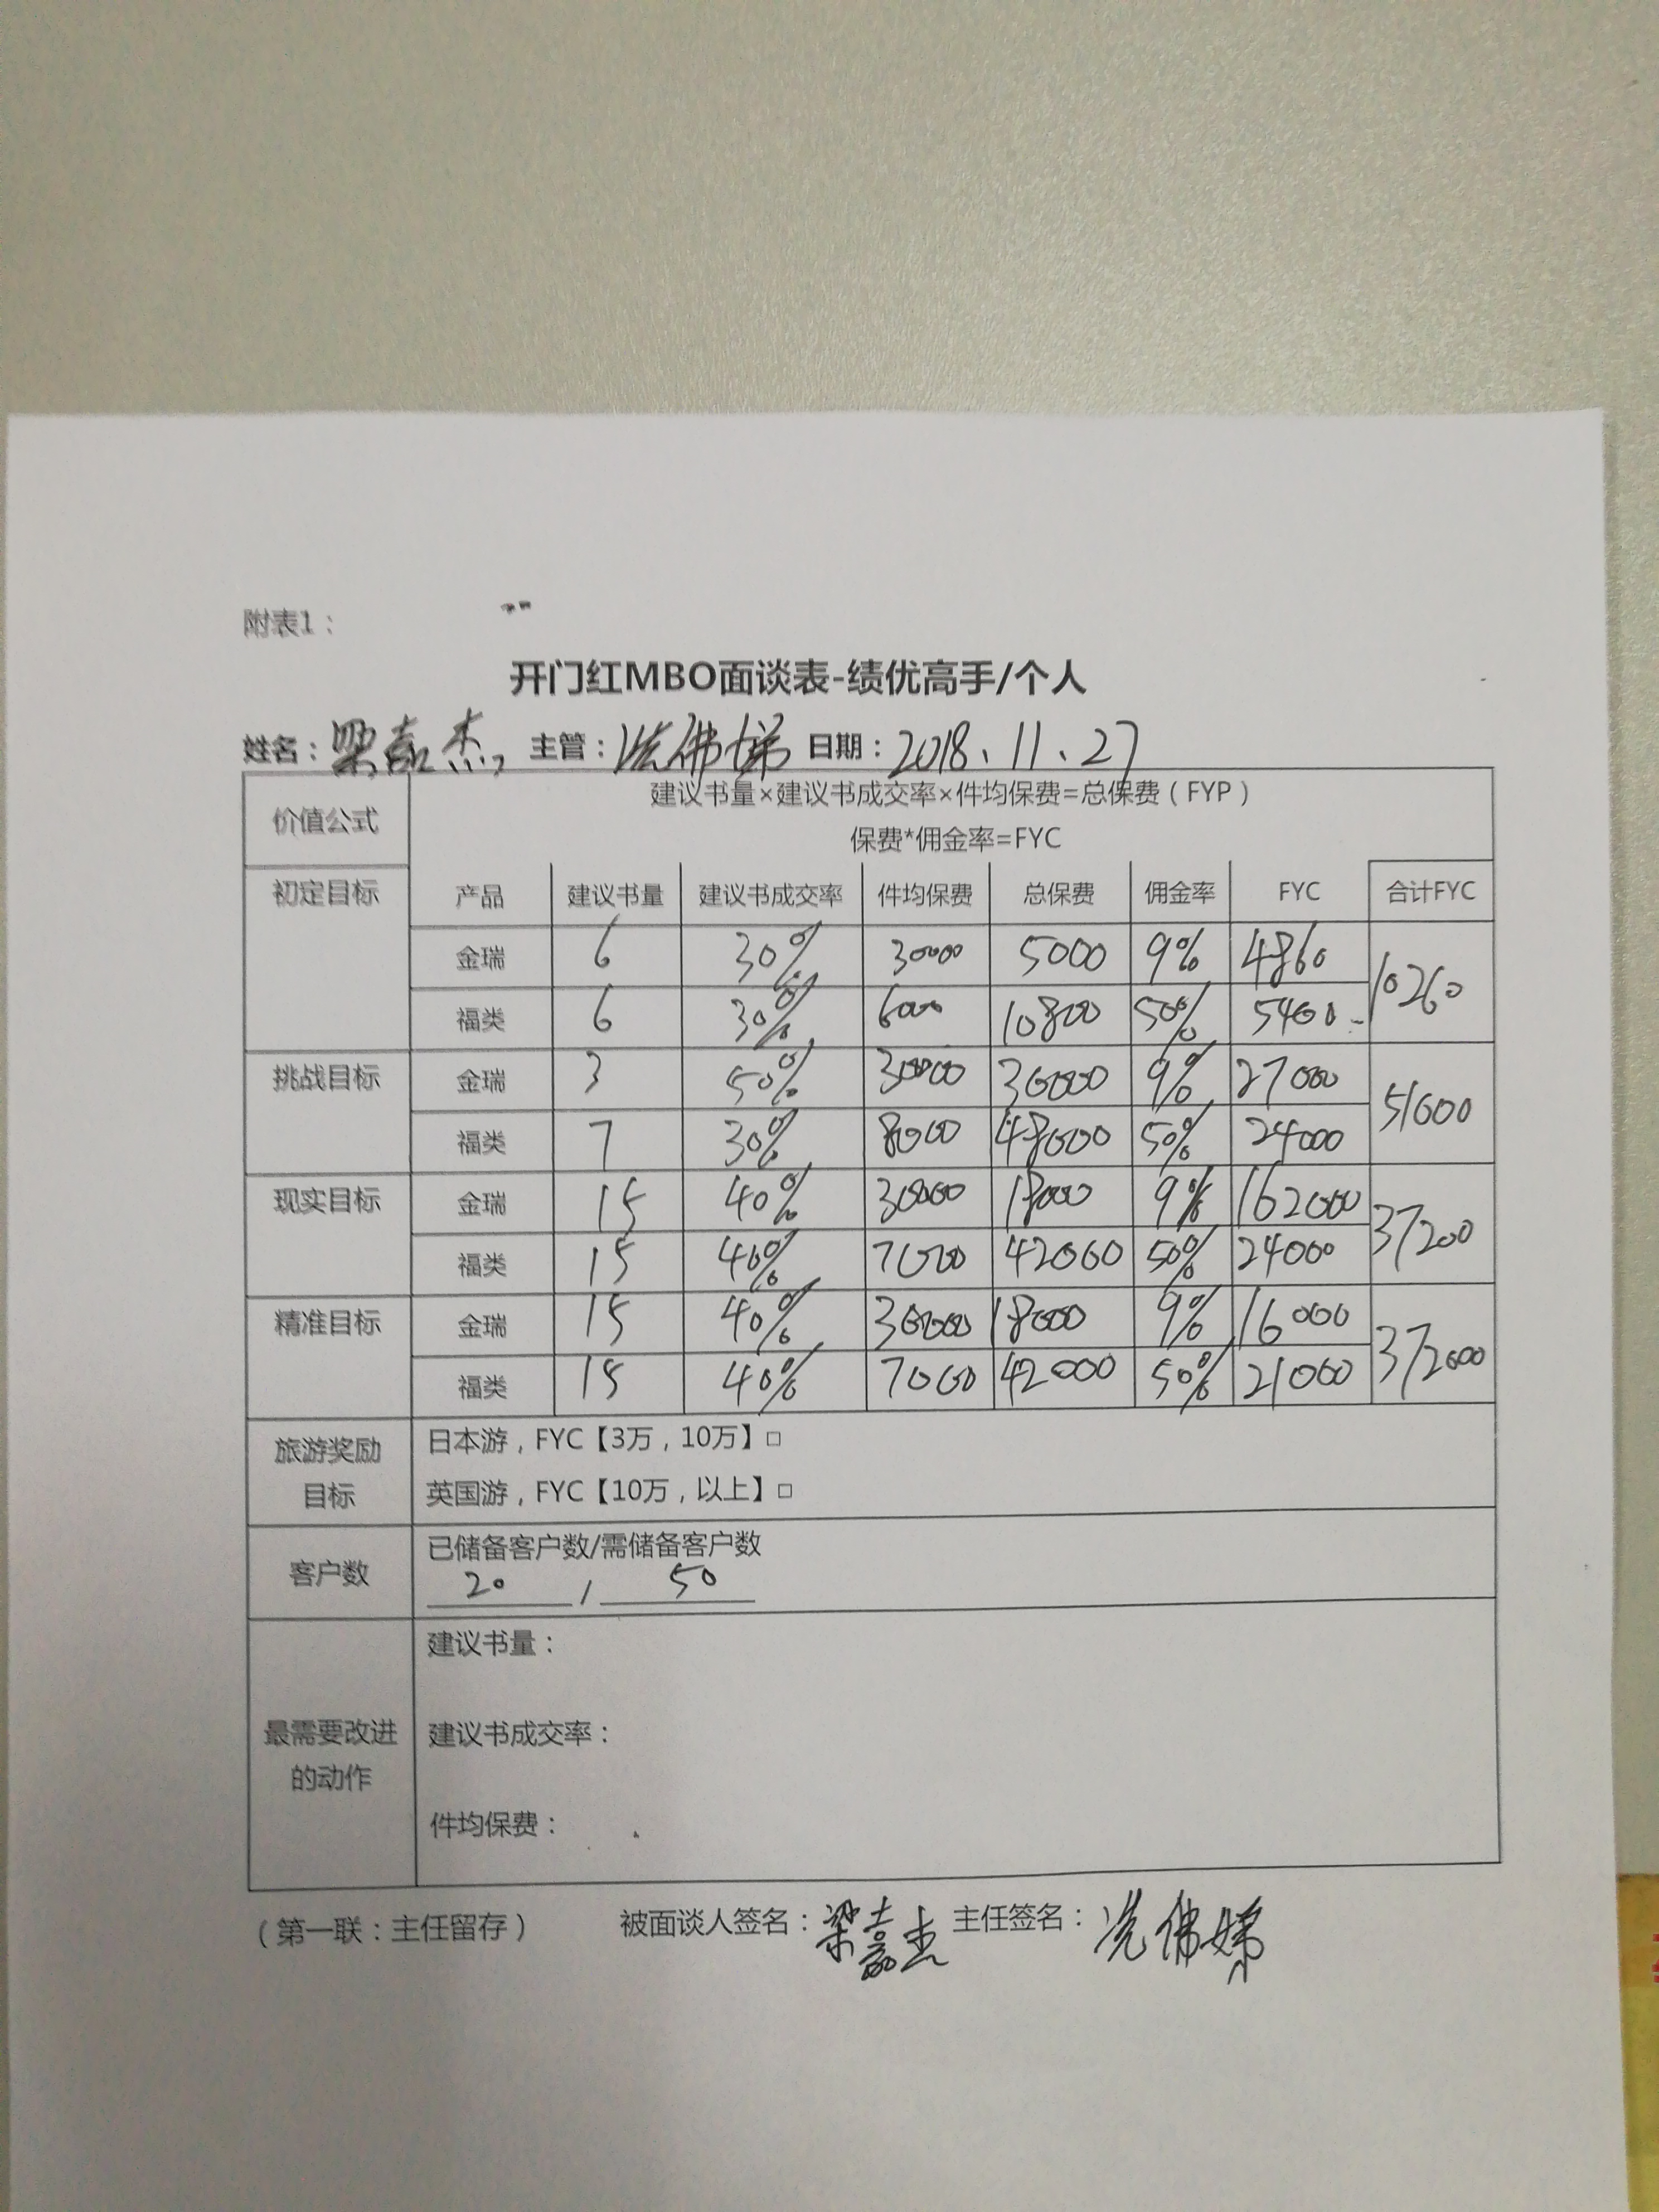 附表1：
开门红MBO面谈表-绩优高手/个人
姓名：梁嘉杰 主管：冼佛娣 日期：2018.11.27
价值公式 建议书量×建议书成交率×件均保费=总保费（FYP）
保费*佣金率=FYC
初定目标 产品 建议书量 建议书成交率 件均保费 总保费 佣金率 FYC 合计FYC
金瑞 6 30% 30000 5000 9% 4860 10260
福类 6 30% 6000 10800 50% 5400
挑战目标 金瑞 3 50% 30000 30000 9% 27000 51000
福类 7 30% 8000 48000 50% 24000
现实目标 金瑞 15 40% 30000 18000 9% 162000 37200
福类 15 40% 7000 42000 50% 24000
精准目标 金瑞 15 40% 30000 18000 9% 16000 372000
福类 15 40% 7000 42000 50% 21000
旅游奖励目标 日本游，FYC【3万，10万】□
英国游，FYC【10万，以上】□
客户数 已储备客户数/需储备客户数
20 / 50
最需要改进的动作 建议书量：
建议书成交率：
件均保费：
（第一联：主任留存） 被面谈人签名：梁嘉杰 主任签名：冼佛娣